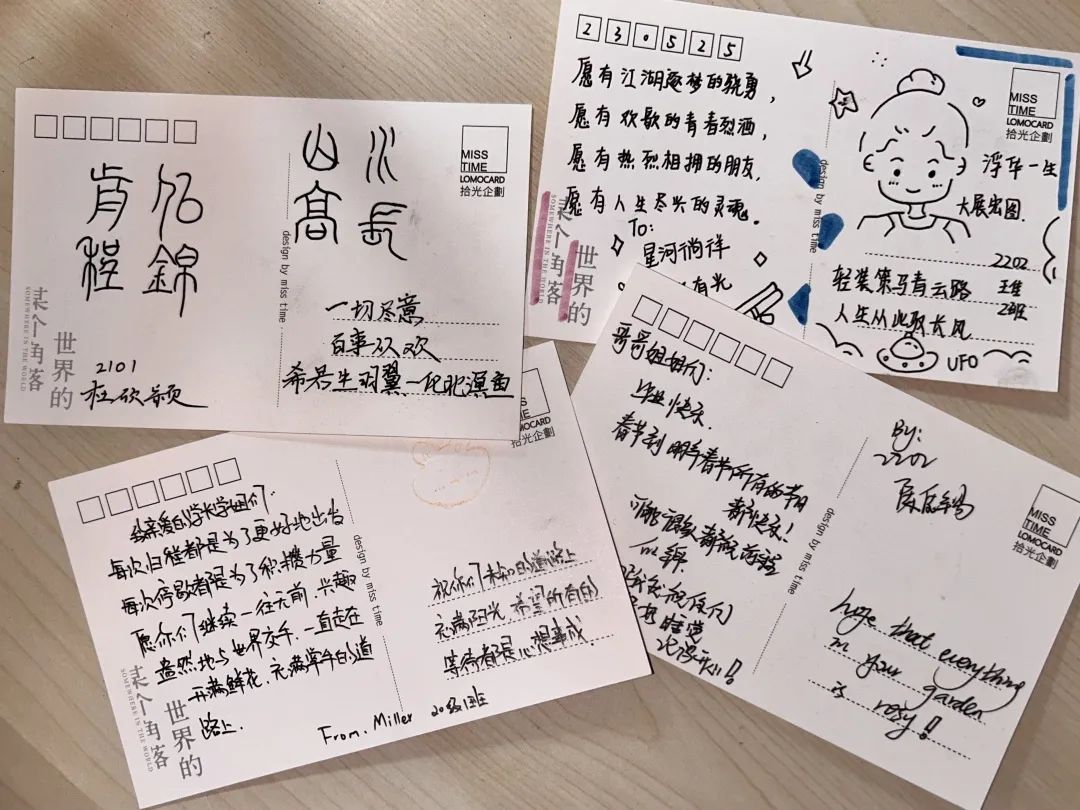 山水
高長
MISS
TIME
LOMOCARD
拾光企劃
design by miss time
一切尽意
百事从欢
希君生羽翼一化北溟鱼
某个角落
世界的
SOMEWHERE IN THE WORLD
2101
230525
愿有江湖逐梦的骁勇,
愿有欢歌的青春烈酒,
愿有热烈相拥的朋友,
愿有人生尽兴的灵魂。
To:
星河徜徉
有光
某个角落
世界的
SOMEWHERE IN THE WORLD
design by miss time
MISS
TIME
LOMOCARD
拾光企劃
浮华一生
大展宏图.
2202
轻装策马青云路
2班
人生从此驭长风
UFO
致亲爱的学长学姐们:
每次归程都是为了更好地出发
每次停歇都是为了积攒力量
愿你们继续一往无前,兴趣
盎然地与世界交手,一直走在
开满鲜花,充满掌声的道
路上.
某个角落
世界的
SOMEWHERE IN THE WORLD
design by miss time
TIME
LOMOCARD
拾光企劃
祝你们的道路上
充满阳光,希望所有的
等待都是心想事成
From. Miller 20级1班
哥哥姐姐们:
毕业快乐.
春节到明年春节所有的节日
都快乐!
design by miss time
By:
2202
MISS
TIME
LOMOCARD
拾光企劃
hope that everything
in your garden
is rosy!!